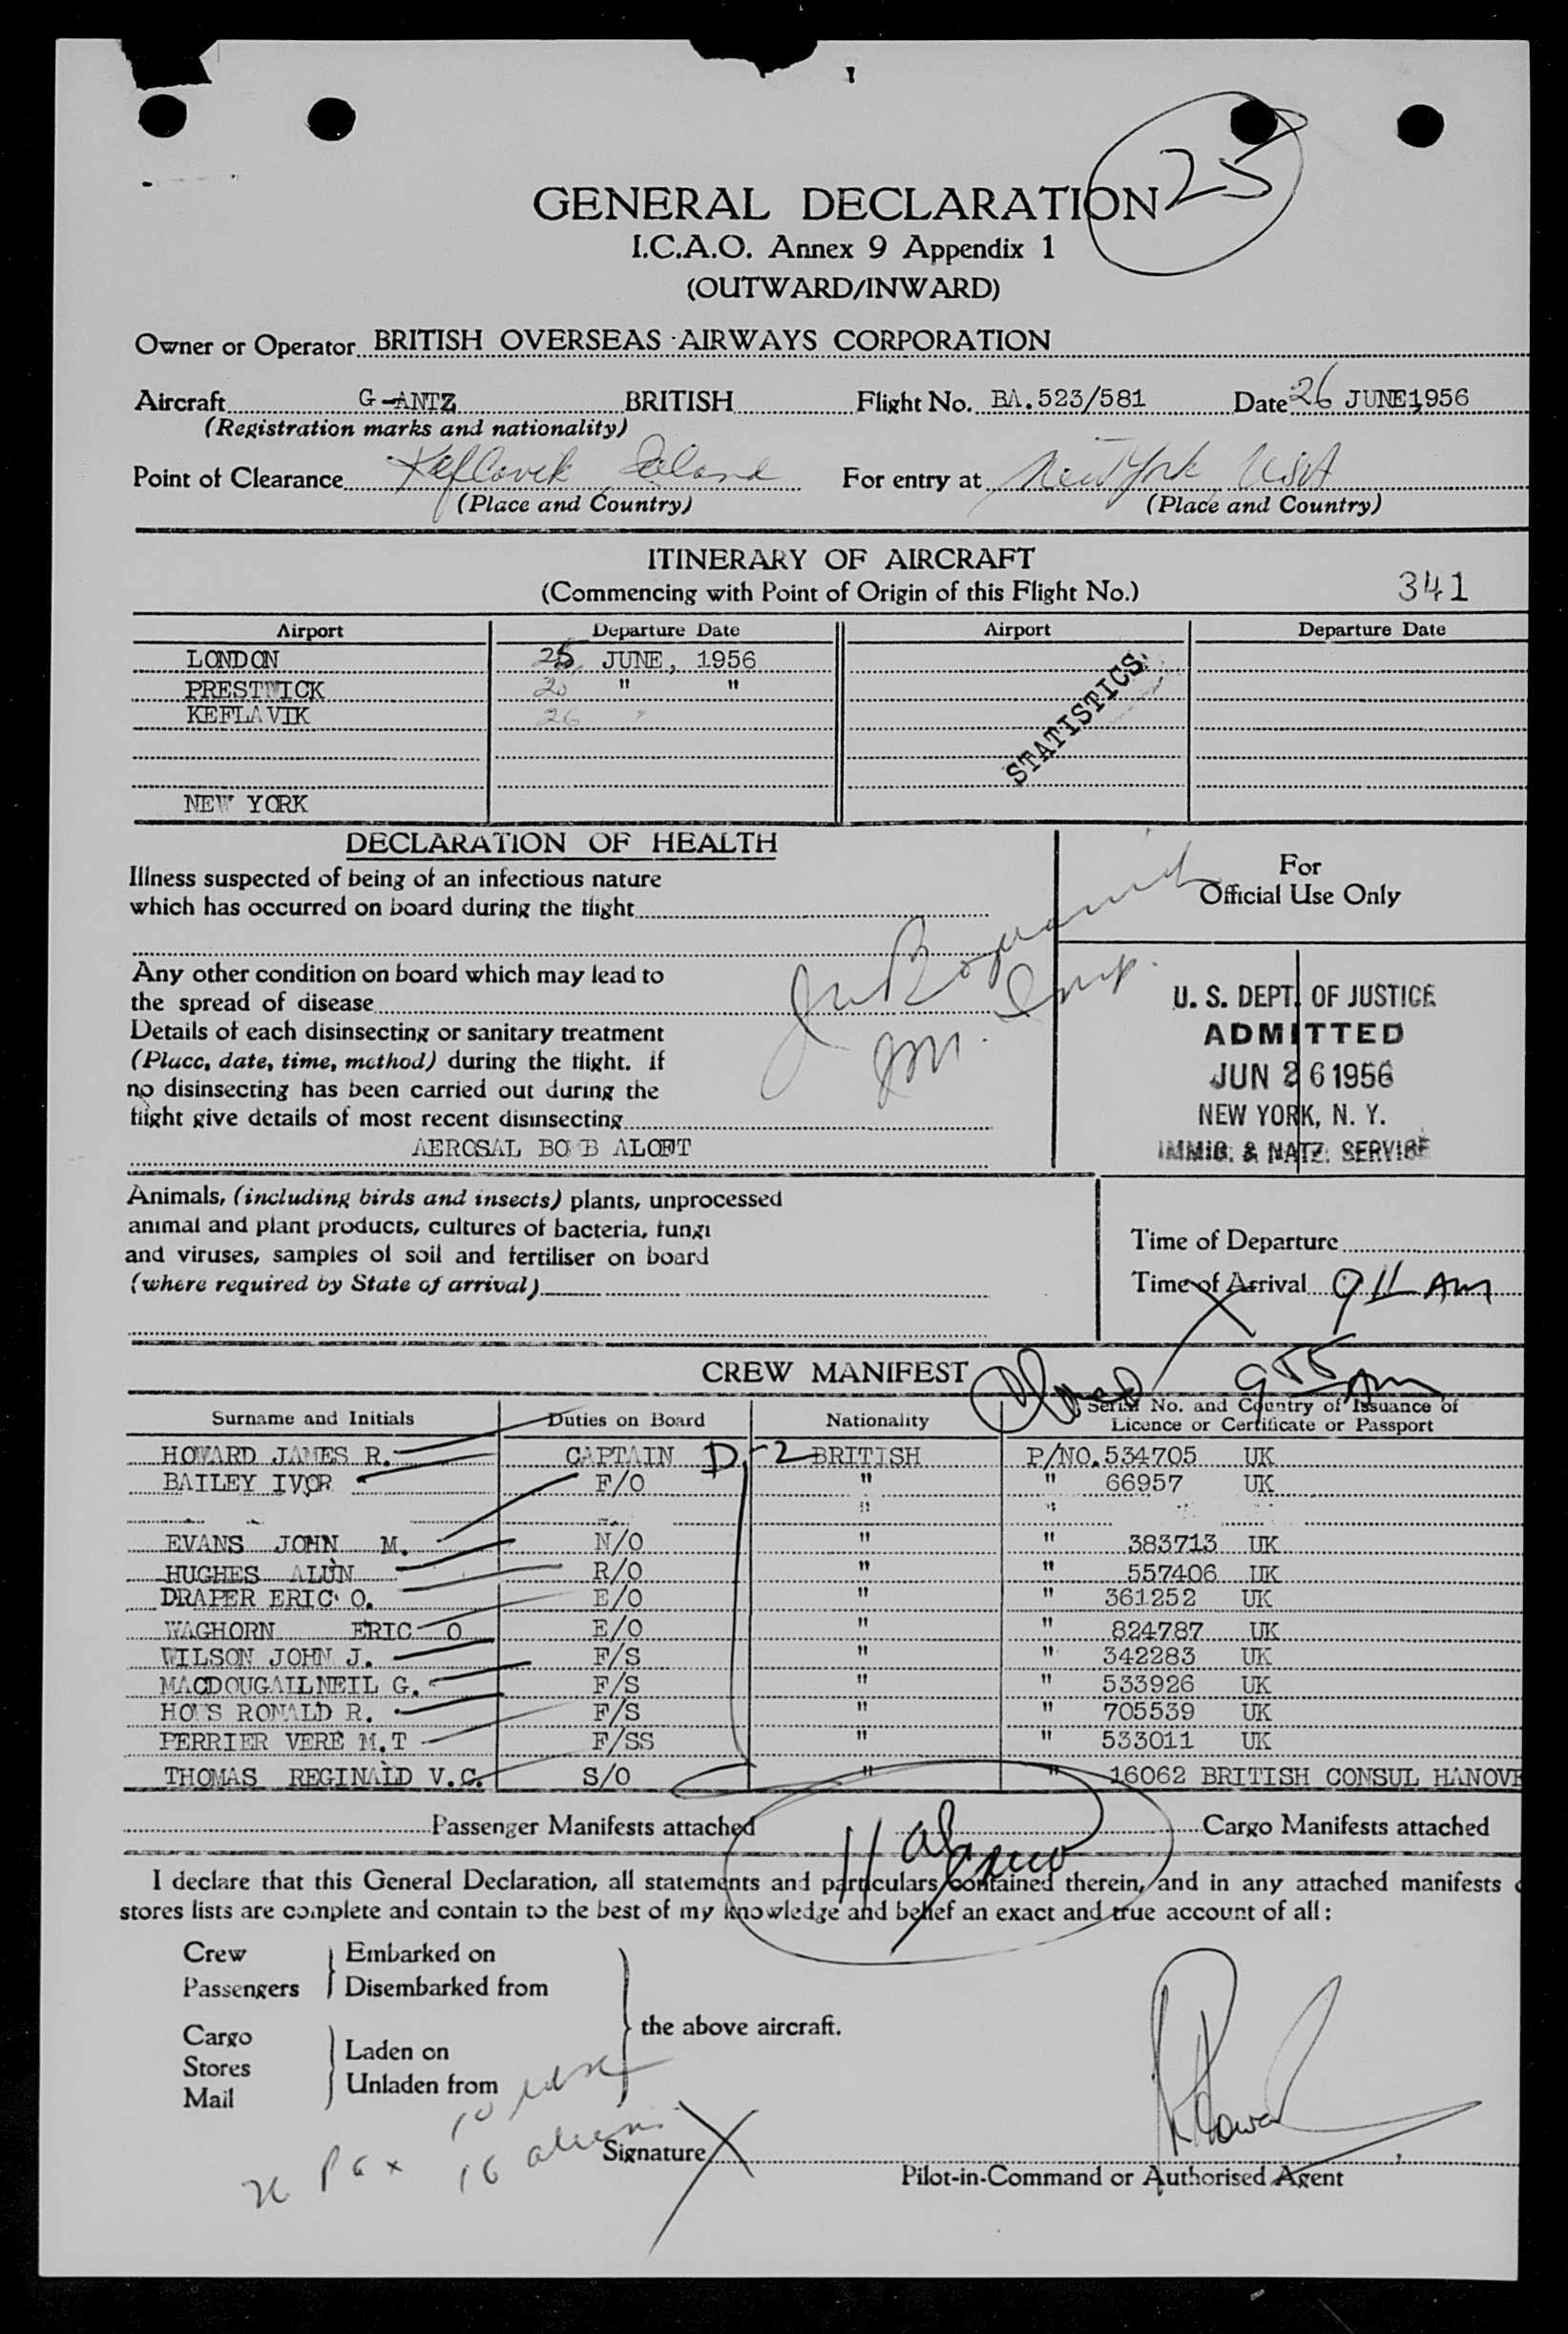 25
GENERAL DECLARATION
I.C.A.O. Annex 9 Appendix 1
(OUTWARD/INWARD)
Owner or Operator BRITISH OVERSEAS AIRWAYS CORPORATION
Aircraft G-ANTZ BRITISH Flight No. BA.523/581 Date 26 JUNE 1956
(Registration marks and nationality)
Point of Clearance Keflavik Iceland For entry at New York, USA
(Place and Country) (Place and Country)
ITINERARY OF AIRCRAFT
(Commencing with Point of Origin of this Flight No.) 341
Airport Departure Date Airport Departure Date
LONDON 25 JUNE, 1956
PRESTWICK " "
KEFLAVIK 26 "
STATISTICS
NEW YORK
DECLARATION OF HEALTH
For
Official Use Only
Illness suspected of being of an infectious nature
which has occurred on board during the flight
Any other condition on board which may lead to
the spread of disease
Details of each disinsecting or sanitary treatment
(Place, date, time, method) during the flight. If
no disinsecting has been carried out during the
flight give details of most recent disinsecting
AEROSAL BOMB ALOFT
Imp.
U. S. DEPT. OF JUSTICE
ADMITTED
JUN 26 1956
NEW YORK, N. Y.
IMMIG. & NATZ. SERVICE
Animals, (including birds and insects) plants, unprocessed
animal and plant products, cultures of bacteria, fungi
and viruses, samples of soil and fertiliser on board
(where required by State of arrival)
Time of Departure
Time of Arrival 9 11 AM
955 Am
CREW MANIFEST
Surname and Initials Duties on Board Nationality Serial No. and Country of Issuance of
Licence or Certificate or Passport
HOWARD JAMES R. CAPTAIN D-2 BRITISH P/NO. 534705 UK
BAILEY IVOR F/O " " 66957 UK
" "
EVANS JOHN M. N/O " " 383713 UK
HUGHES ALUN R/O " " 557406 UK
DRAPER ERIC O. E/O " " 361252 UK
WAGHORN ERIC O E/O " " 824787 UK
WILSON JOHN J. F/S " " 342283 UK
MACDOUGAILNEIL G. F/S " " 533926 UK
HOWS RONALD R. F/S " " 705539 UK
PERRIER VERE M.T F/SS " " 533011 UK
THOMAS REGINALD V.C. S/O " " 16062 BRITISH CONSUL HANOVE
Passenger Manifests attached Cargo Manifests attached
11 Crew
I declare that this General Declaration, all statements and particulars contained therein, and in any attached manifests
stores lists are complete and contain to the best of my knowledge and belief an exact and true account of all:
Crew Embarked on
Passengers Disembarked from
the above aircraft.
Cargo
Stores Laden on
Mail Unladen from
10 usc
26 Pax 16 aliens
Signature
Pilot-in-Command or Authorised Agent